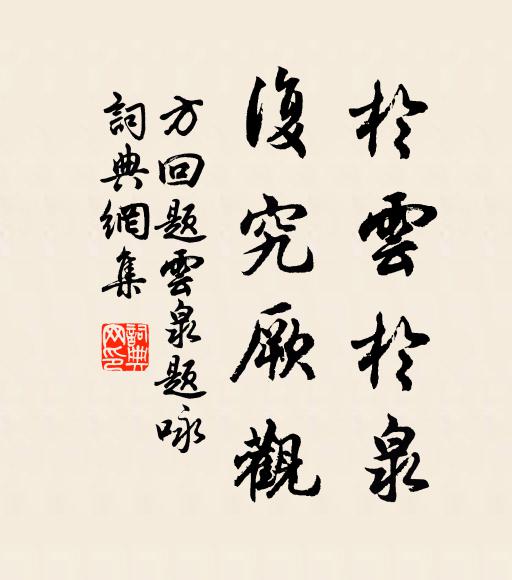 於雲於泉
復究厥觀
方回题雲泉题咏
詞典網集
詞典網印